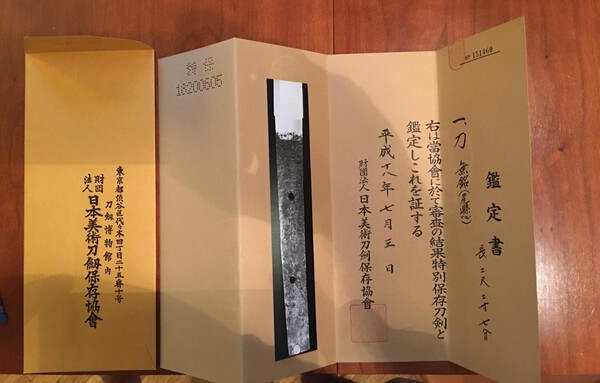 No 151460
鑑定書
一、刀 無銘
長 二尺二寸七分
右は當協會に於て審査の結果特別保存刀剣と
鑑定しこれを証する
平成十八年七月三日
財團法人 日本美術刀劍保存協會
特保
18200605
東京都渋谷区代々木四丁目二十五番十号
刀劍博物館内
財団法人 日本美術刀劍保存協會